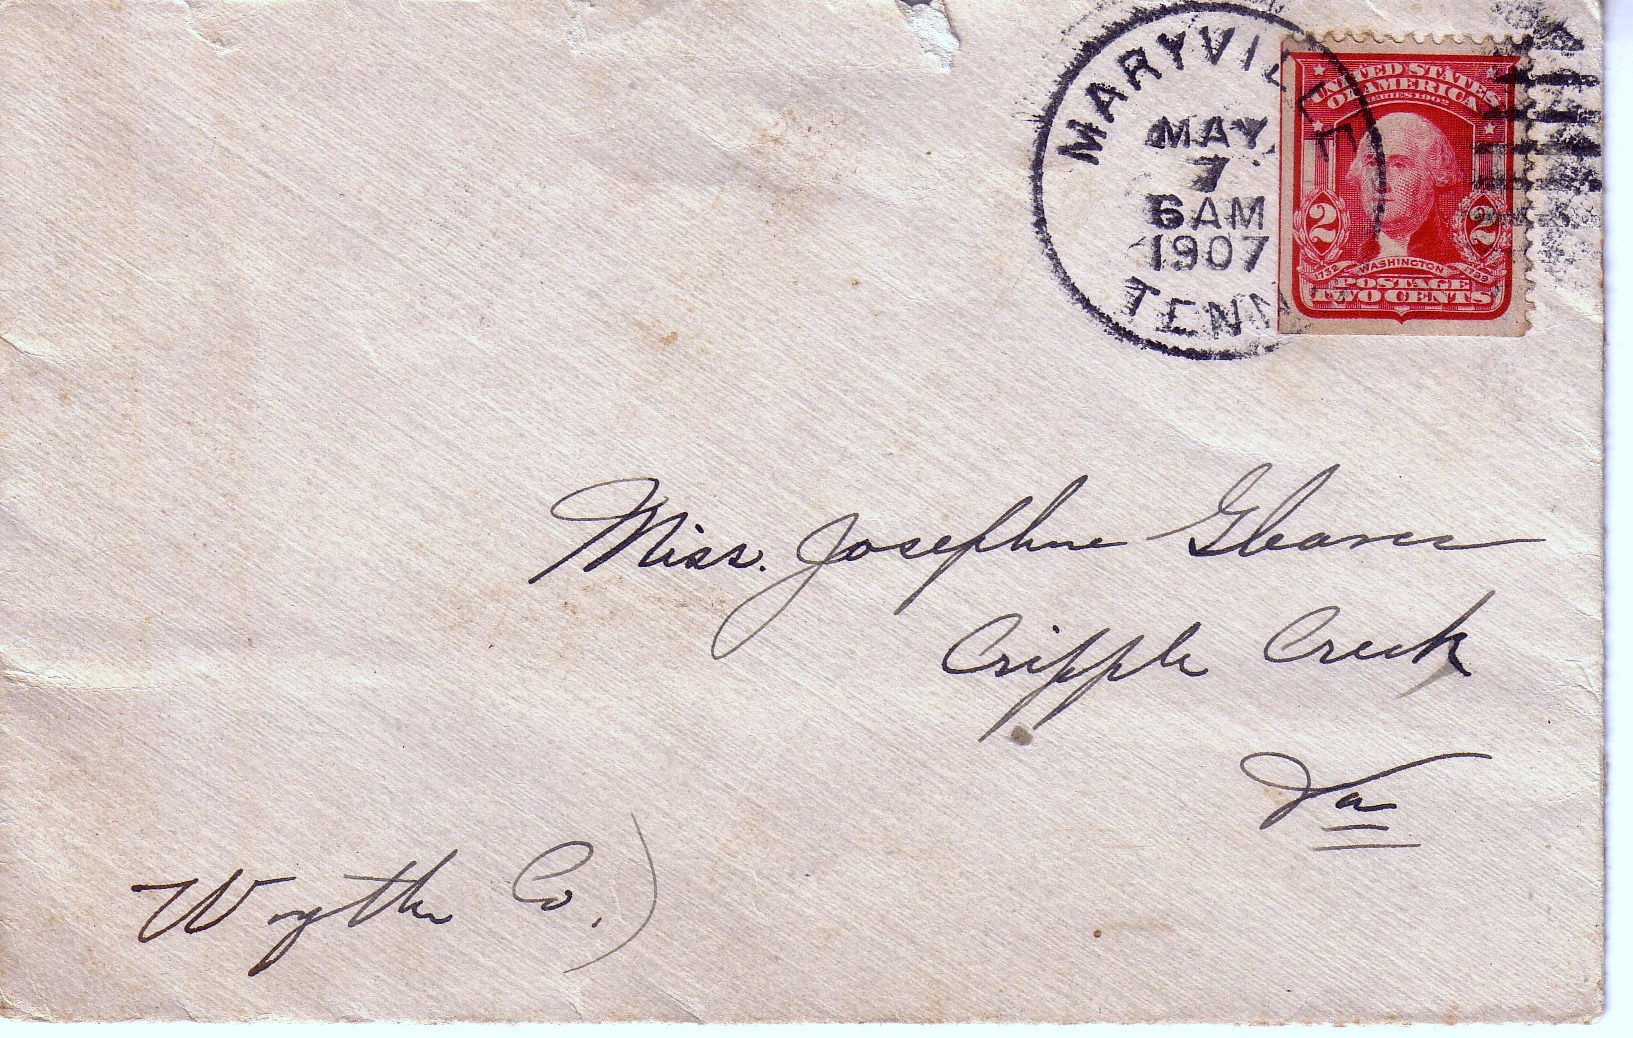 MARYVILLE
MAY
7
6 AM
1907
TENN
UNITED STATES
OF AMERICA
SERIES 1902
2 2
1732 WASHINGTON 1799
POSTAGE
TWO CENTS
Miss. Josephine Gleaves
Cripple Creek
Va
Wythe Co.)